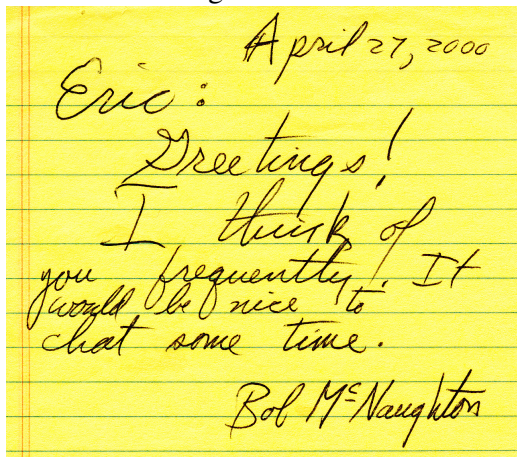 April 27, 2000
Eric:
Greetings!
I think of
you frequently. It
would be nice to
chat some time.
Bob McNaughton